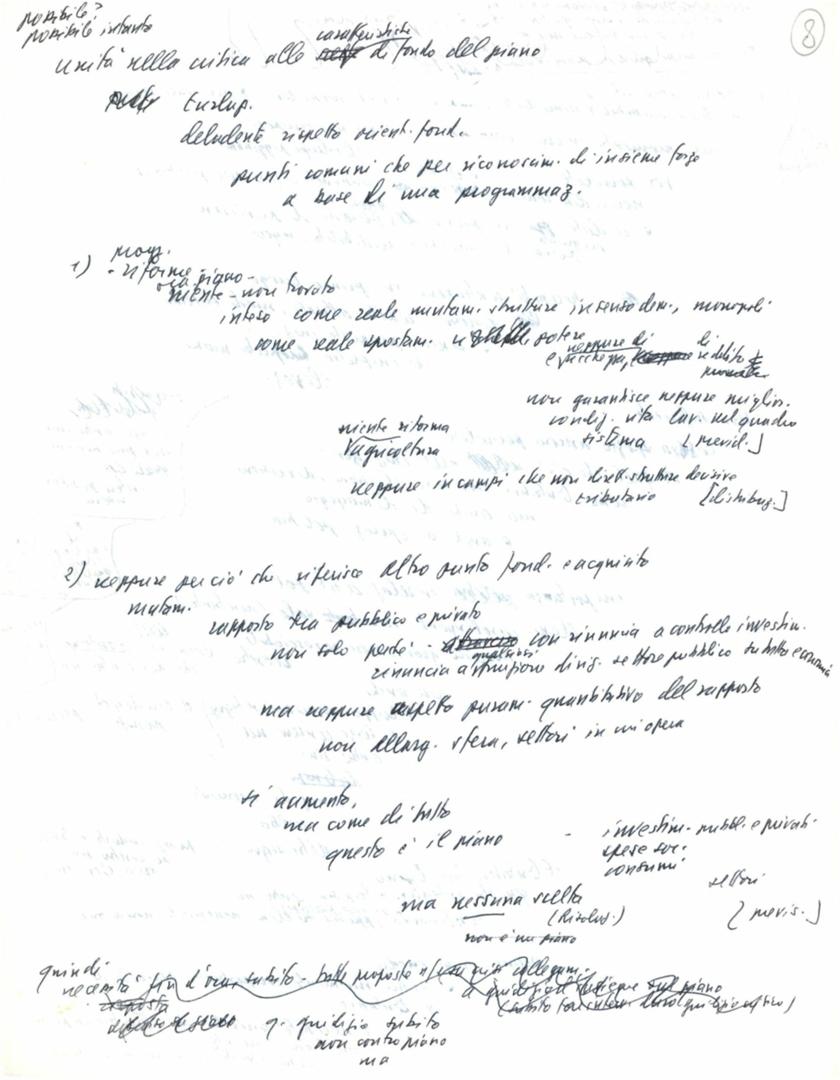 possibile?
possibile intanto
8
unità nella critica alle caratteristiche di fondo del piano
deludente rispetto orient. fond.
punti comuni che per riconoscim. di insieme forze
a base di una programmaz.
1)
- riforme
niente - non trovato
inteso come reale mutam. strutture in senso dem., monopoli
come reale spostam. potere
e ricchezza, neppure di reddito
non garantisce neppure miglior.
condiz. vita lav. nel quadro
sistema [merid.]
niente riforma
agricoltura
neppure in campi che non dirett. strutture decisive
tributario [distribuz.]
2) neppure per ciò che riferisce altro punto fond. e acquisito
rapporto tra pubblico e privato
non solo perché - con rinuncia a controllo investim.
rinuncia a funzione dirig. settore pubblico su tutta economia
ma neppure aspetto puram. quantitativo del rapporto
non allarg. sfera, settori in cui opera
si aumento,
ma come di tutto
questo è il piano - investim. pubbl. e privati
spese soc.
consumi
settori
ma nessuna scelta
(Risolus.)
non è un piano
quindi
necessità fin d'ora, subito
giudizio subito
non contro piano
ma